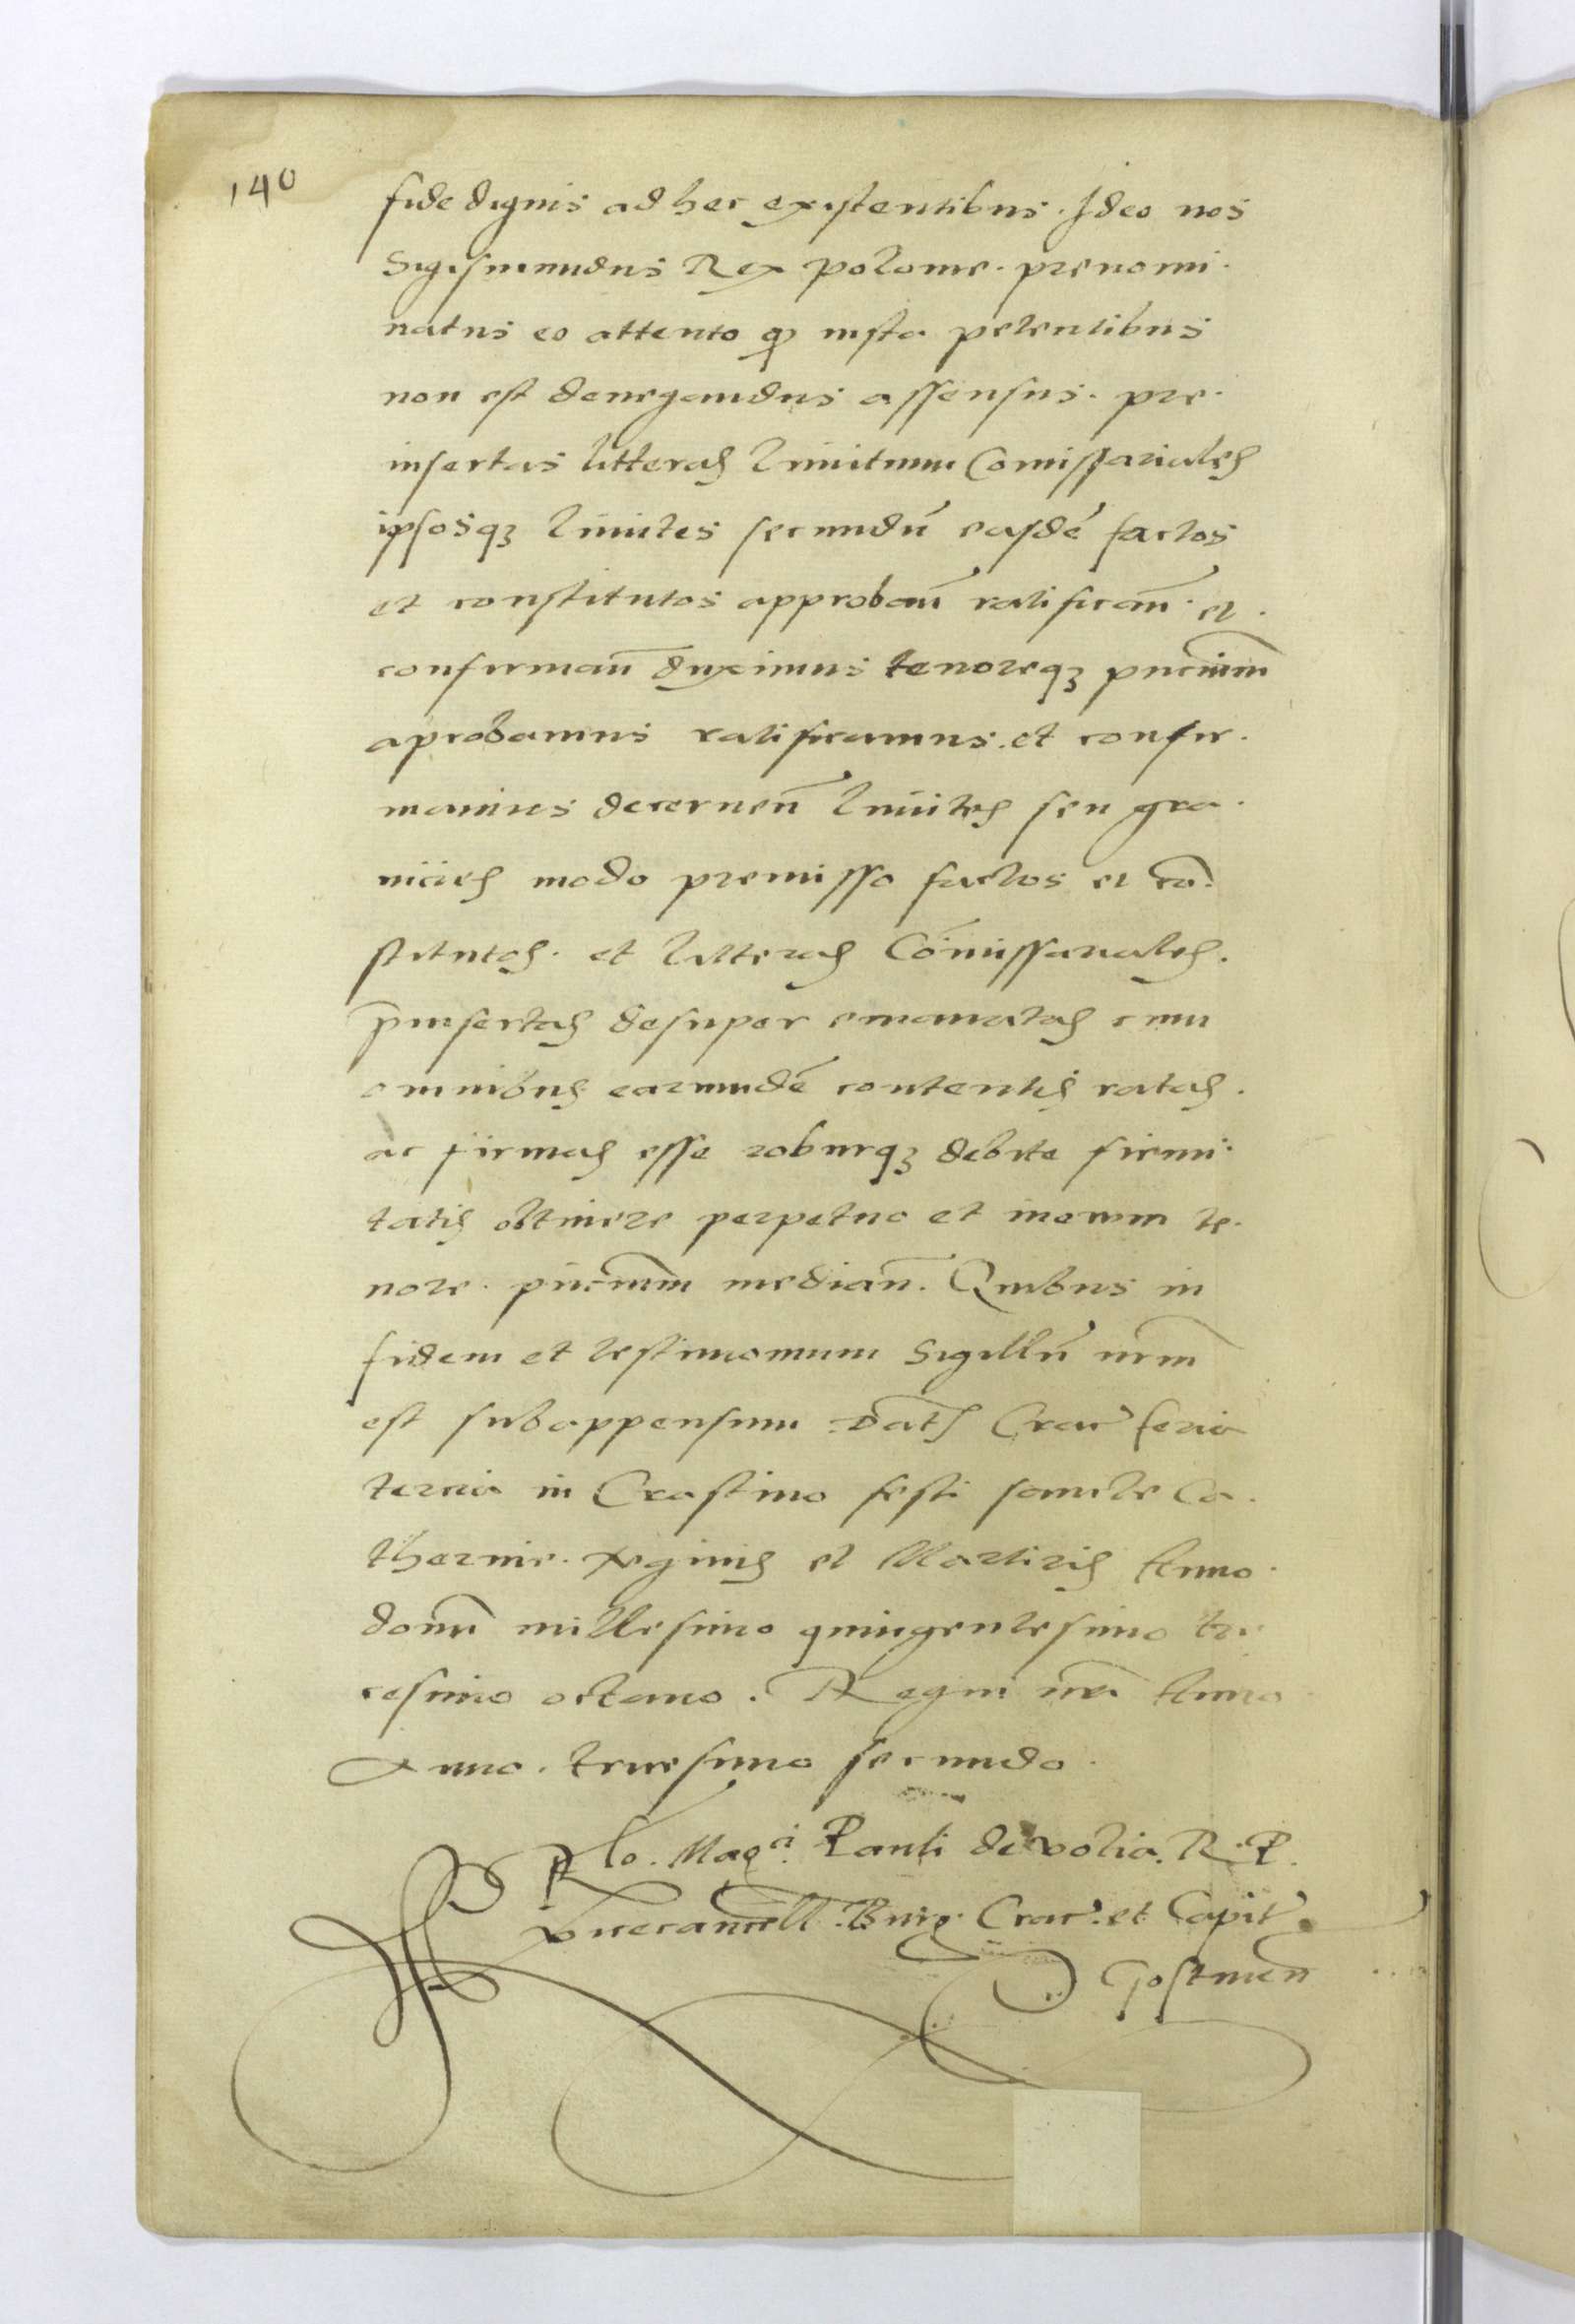 140
fide dignis ad hec existentibus. Ideo nos
Sigismundus Rex polonie. prenomi.
natus eo attento q iusta petentibus
non est denegandus assensus. pre.
insertas litteras limitum Comissariales
ipsosq3 limites secundū easdē factos
et constitutos approbañ ratificañ. et.
confirmañ duximus tenoreq3 pñcium
aprobamus ratificamus. et confir.
mamus decerneñ limites seu gra.
nicies modo premisso factos et cō.
stitutos. et litteras Cōmissariales.
p̄insertas desuper emanatas cum
omnibus earundē contentis ratas.
ac firmas esse roburq3 debite firmi.
tatis obtinere perpetuo et in evum te.
nore. pñcium mediañ. Quibus in
fidem et testimonium Sigillū nrm
est subappensum Dat Crac feria
tercia in Crastino festi sancte Ca.
therine. virginis et Martiris Anno.
domī millesimo quingentesimo tri
cesimo octavo. Regni nrī Anno
Anno. tricesimo secundo.
Rlo. Mag^ci Pauli de volia. R. P.
vicecancell. Burg. Crac. et Capit
Gostineñ